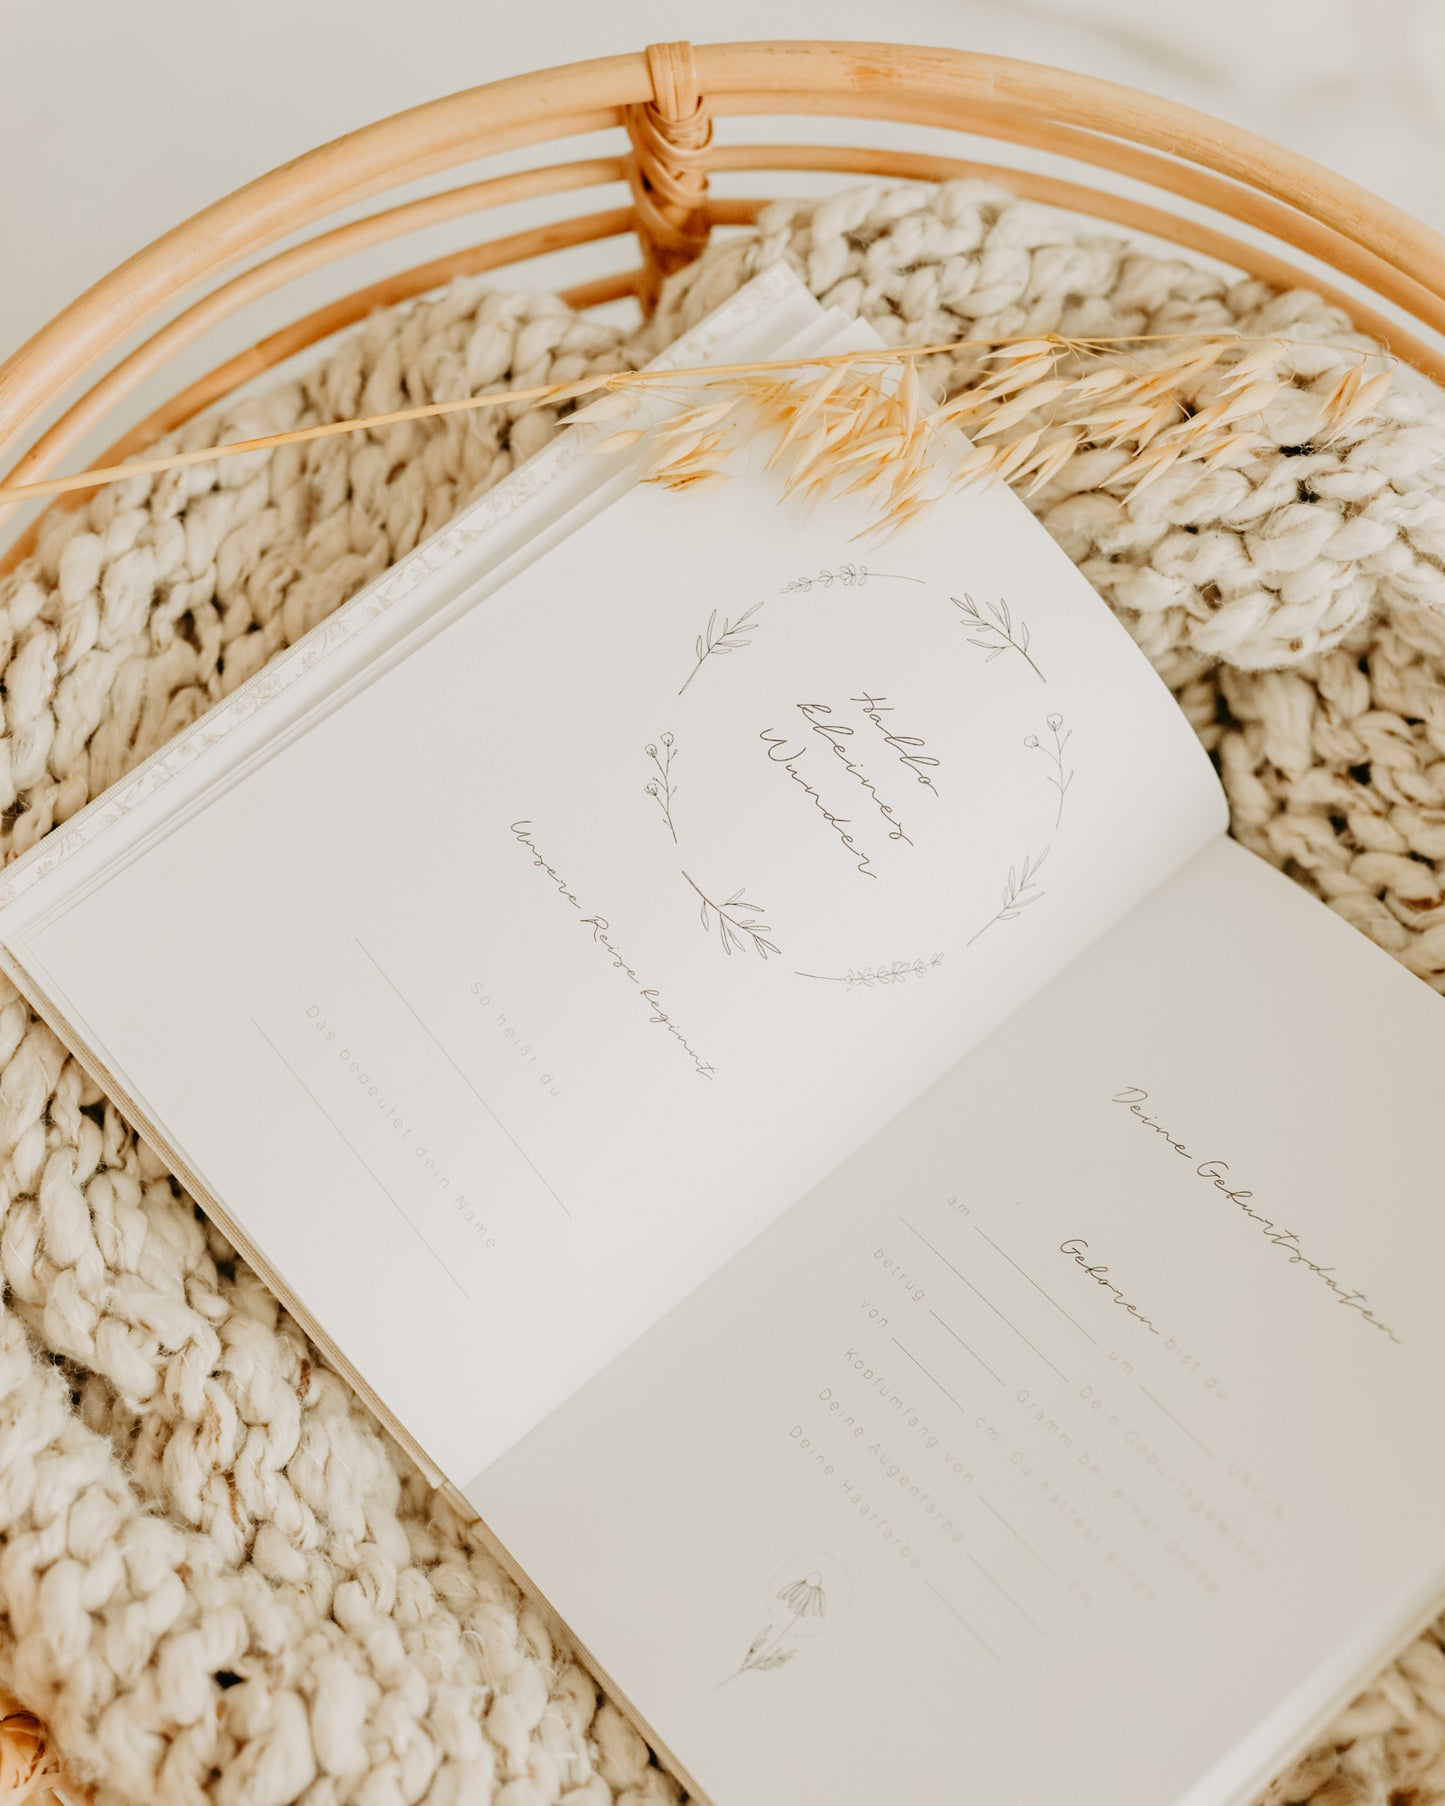 Hallo
kleines
Wunder
Unsere Reise beginnt
So heißt du
Das bedeutet dein Name
Deine Geburtsdaten
Geboren bist du
am um Uhr in
Dein Geburtsgewicht
betrug Gramm bei einer Größe
von cm. Du hattest einen
Kopfumfang von cm
Deine Augenfarbe
Deine Haarfarbe